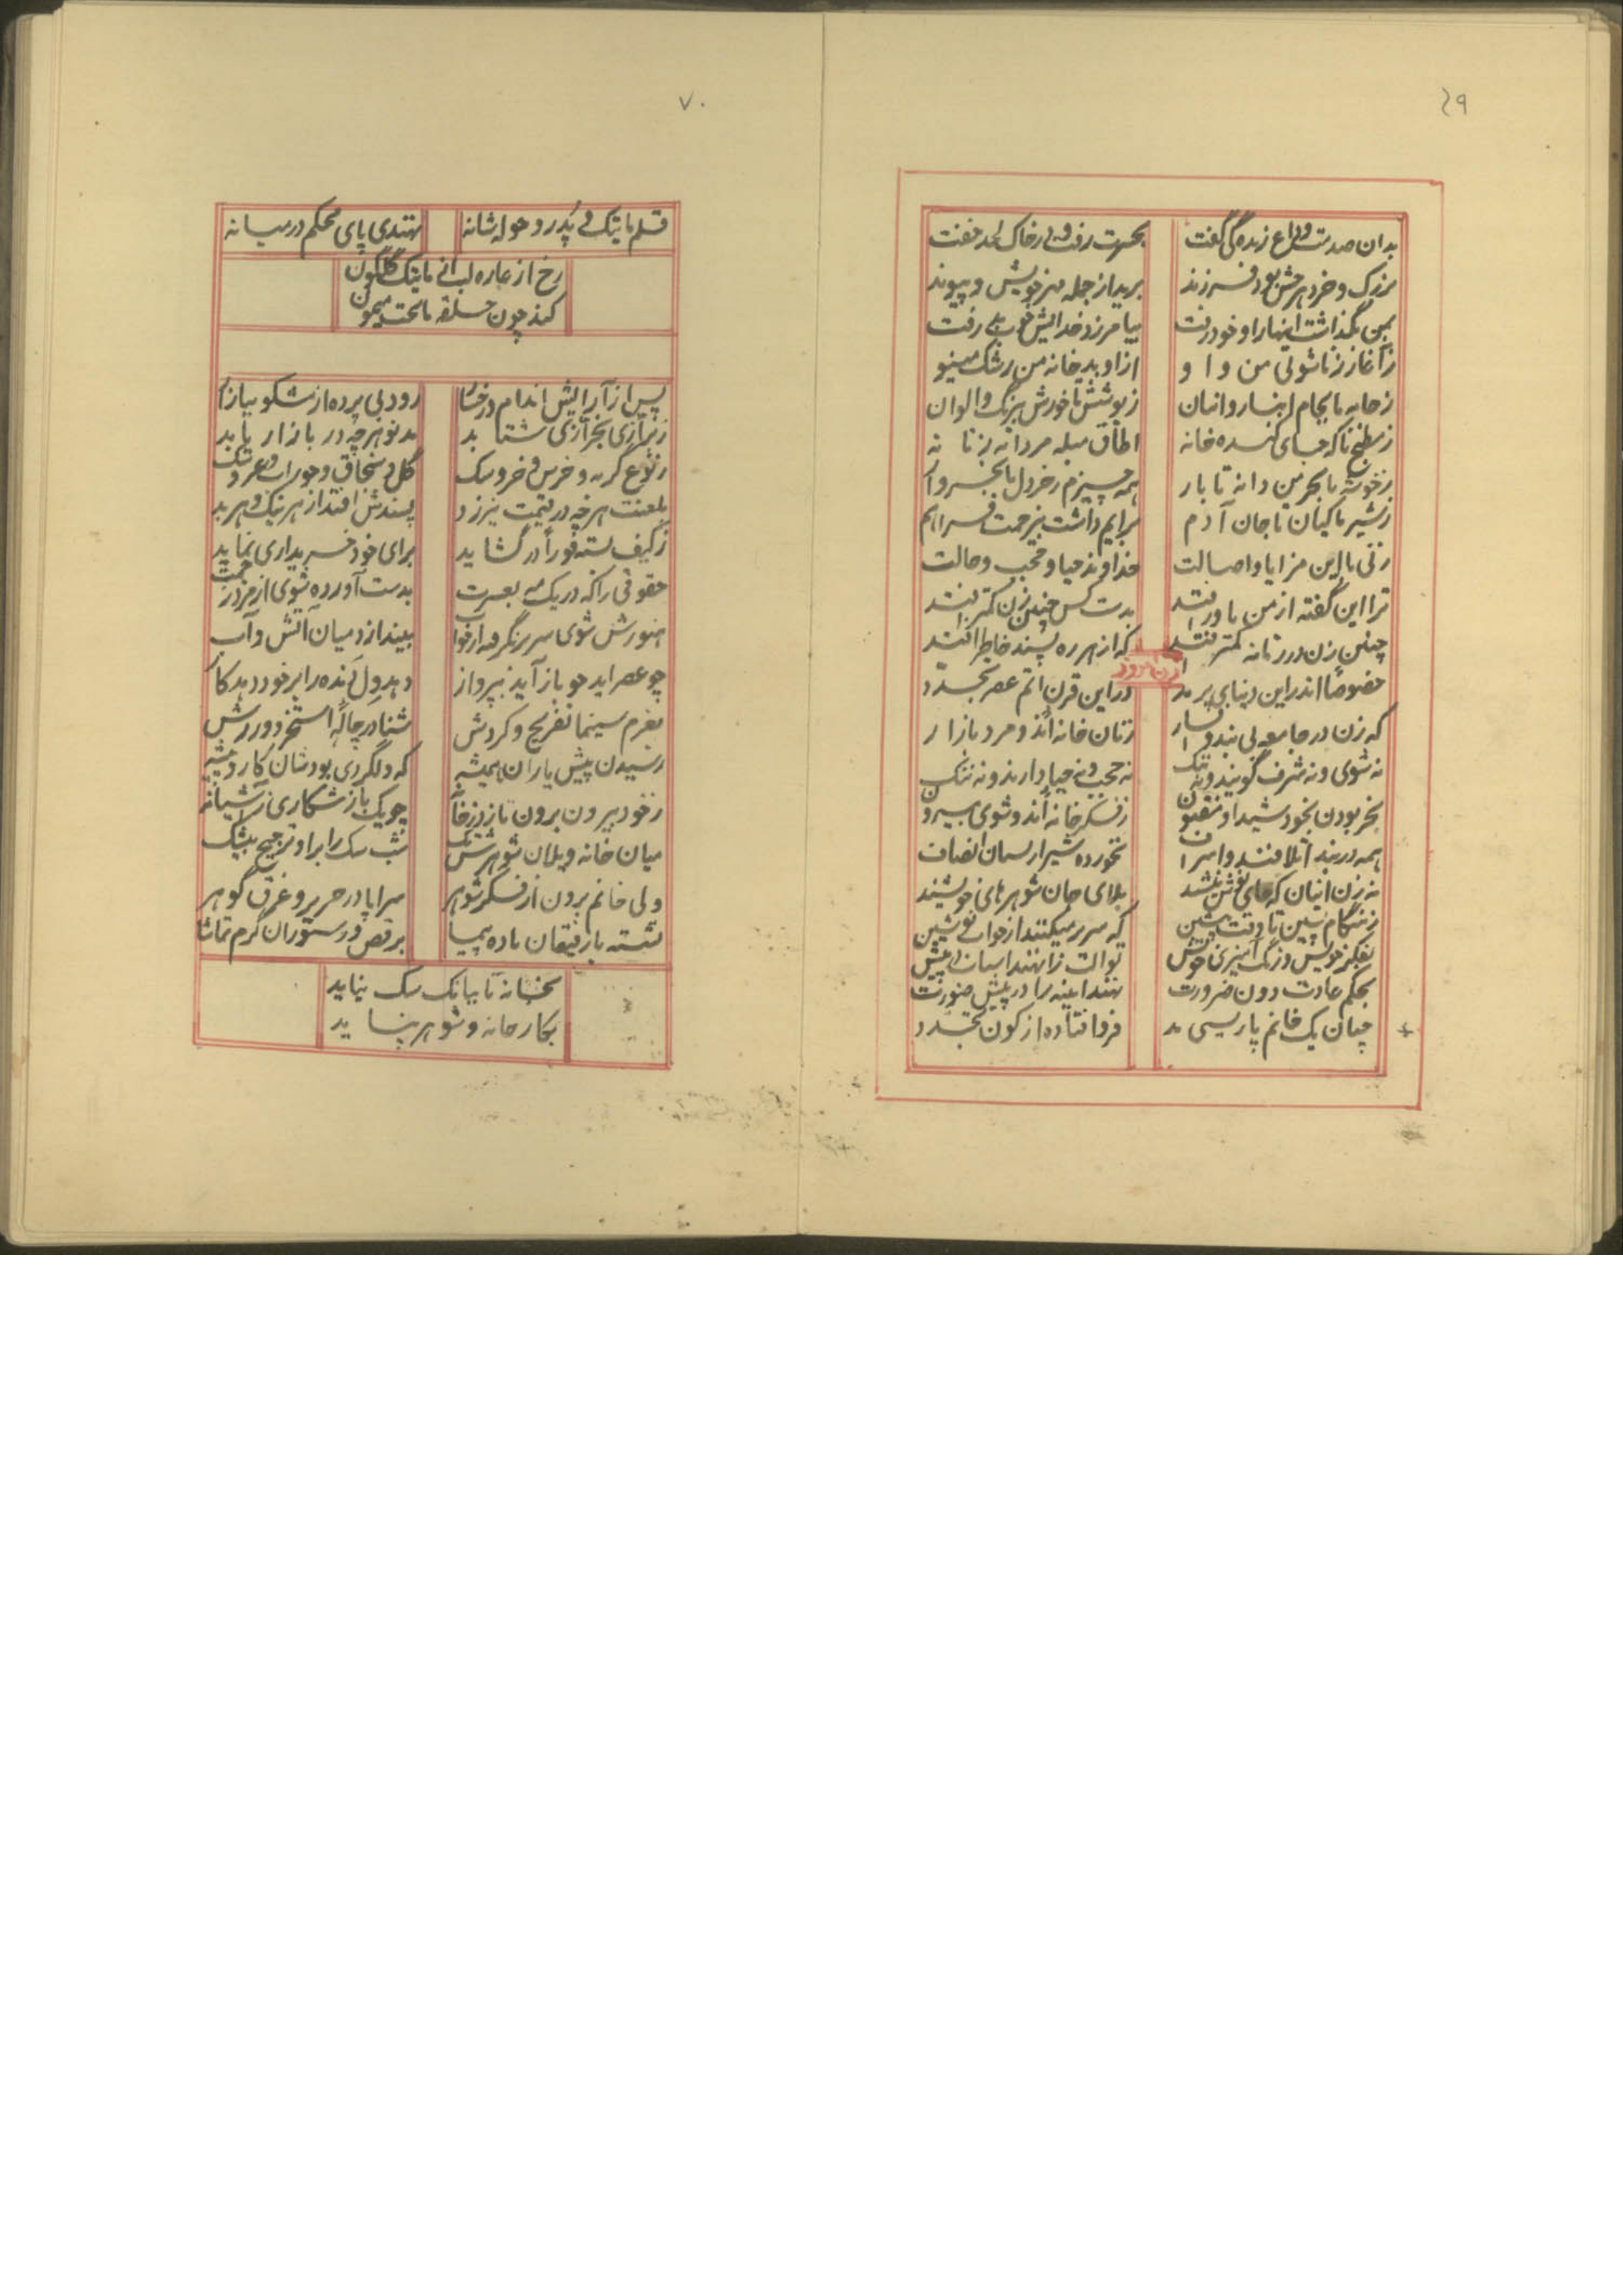 ۶۹
بدان صدمت وداع زندگی گفت
بحسرت رفت و در خاک لحد خفت
بزرگ و خرد هر چش بود فرزند
برید از جمله مهر خویش و پیوند
بمن بگذاشت اینها را و خود رفت
بیامرزد خدایش خوب رفت
ز آغاز زناشوئی من و او
از او بد خانه من رشک مینو
ز جامه تا بجام انبار و انبان
ز پوشش تا خورش هر رنگ و الوان
ز مطبخ تا که جای کنده خانه
اطاق مبله مردانه زنانه
ز خوشه تا بخرمن دانه تا بار
همه چیزم ز خردل تا بخروار
ز شیر ماکیان تا جان آدم
برایم داشت بیزحمت فراهم
زنی با این مزایا و اصالت
خداوند حیا و حجب و حالت
ترا این گفته از من باور افتد
بدست کس چنین زن کمتر افتد
چنین زن در زمانه کمتر افتد
که از هر ره پسند خاطر افتد
زن امروز
خصوصا اندر این دنیای پر بد
در این قرن اتم عصر تجدد
که زن در جامعه بی بند و افسار
زنان خانه اند و مرد بازار
نه شوی و نه شرف گویند و نه ننگ
نه حجب و نه حیا دارند و نه
بجز بودن بخود شیدا و مفتون
ز فکر خانه اند و شوی بیرون
همه در بند اتلافند و اسراف
نخورده شیر از پستان انصاف
نه زن اینان که جای نوش نیشند
بلای جان شوهرهای خویشند
ز هنگام پسین تا وقت پیشین
که سر بر میکنند از خواب نوشین
بفکر خویش و رنگ آمیزی خویش
توالت را نهند اسباب در پیش
بحکم عادت دون ضرورت
نهند آینه را در پیش صورت
چنان یک خانم پاریسی مد
فرو افتاده از کون تجدد
۷۰
قلم ماتیک و پدر و حوله شانه
نهندی پای محکم در میانه
رخ از غازه لب از ماتیک گلگون
کند چون حلقه ماتحت میمون
پس از آرایش اندام و رخسار
رود بی پرده از مشکو ببازار
ز بزازی بخرازی شتابد
مد نو هر چه در بازار یابد
ز نوع گربه و خرس و خر و سگ
گل و سنجاق و جوراب و عروسک
بلعنت هر چه در قیمت نیرزد
پسندش افتد از هر نیک و هر بد
ز کیف بسته فورا در گشاید
برای خود خریداری نماید
حقوقی را که در یک مه بعسرت
بدست آورده شوی از مزد زحمت
هنوزش شوی سر بر نگرفته از خواب
بیندازد میان آتش و آب
چو عصر آید چو باز آید بپرواز
دهد دل نده را بر خود دهد کاز
بعزم سینما تفریح و گردش
شنا در چاله استخر و ورزش
رسیدن پیش یاران همیشه
که ولگردی بودشان کار و پیشه
ز خود بیرون برون تازد ز خانه
چو یک باز شکاری ز آشیانه
میان خانه ویلان شوهرش تک
شب سگ را بر او ترجیح بیشک
ولی خانم برون از فکر شوهر
سراپا در حریر و غرق گوهر
نشسته با رفیقان باده پیما
برقص در ستوران گرم تماشا
بخانه تا ببانگ سگ نیاید
بکار خانه و شوهر نپاید